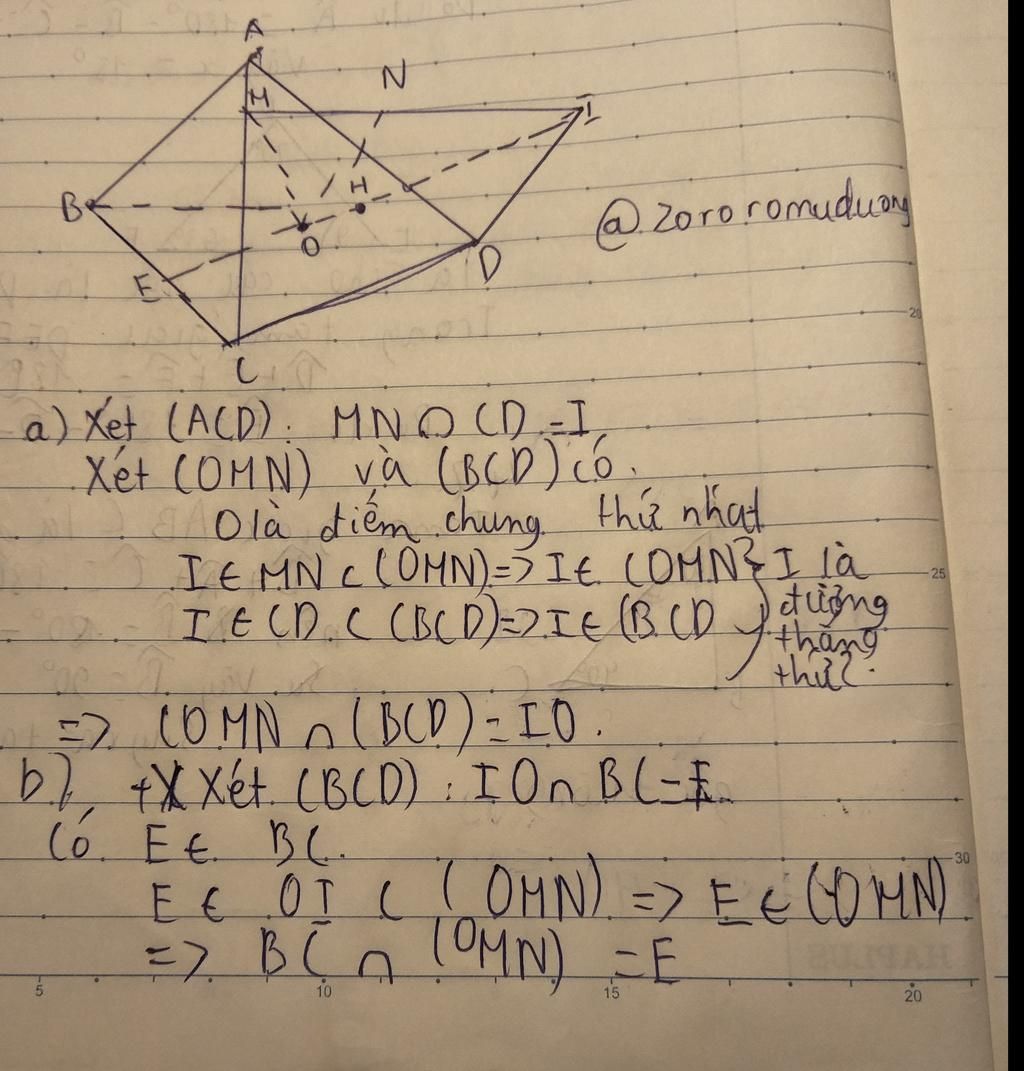 A
N
M
I
B
H
O
@zororomuduong
E
D
C
a) Xét (ACD): MN ∩ CD = I
Xét (OMN) và (BCD) có.
O là điểm chung thứ nhất
I ∈ MN ⊂ (OMN) => I ∈ (OMN } I là
I ∈ CD ⊂ (BCD) => I ∈ (BCD đường
thẳng
thứ 2.
=> (OMN ∩ (BCD) = IO.
b), + Xét (BCD) : IO ∩ BC = E
Có E ∈ BC.
E ∈ OI ⊂ (OMN) => E ∈ (OMN)
=> BC ∩ (OMN) = E
20
25
30
5 10 15 20